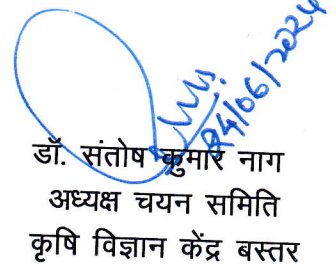 24/06/2024
डॉ. संतोष कुमार नाग
अध्यक्ष चयन समिति
कृषि विज्ञान केंद्र बस्तर